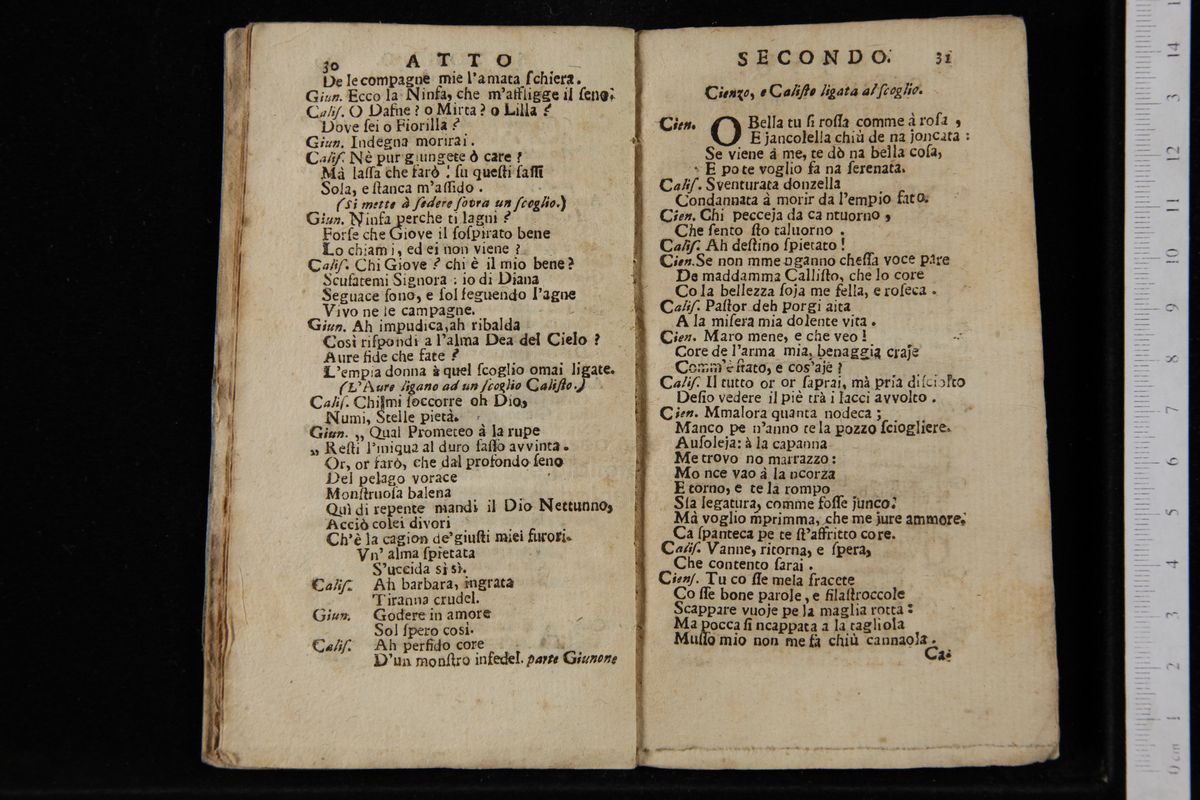 30 ATTO
De le compagne mie l'amata ſchiera.
Giun. Ecco la Ninfa, che m'affligge il ſeno.
Caliſ. O Dafne? o Mirta? o Lilla?
Dove ſei o Fiorilla?
Giun. Indegna morirai.
Caliſ. Nè pur giungete ò care?
Mà laſſa che farò: ſu queſti ſaſſi
Sola, e ſtanca m'aſſido.
(Si mette à ſedere ſovra un ſcoglio.)
Giun. Ninfa perche ti lagni?
Forſe che Giove il ſoſpirato bene
Lo chiami, ed ei non viene?
Caliſ. Chi Giove? chi è il mio bene?
Scuſatemi Signora: io di Diana
Seguace ſono, e ſol ſeguendo l'agne
Vivo ne le campagne.
Giun. Ah impudica, ah ribalda
Così riſpondi a l'alma Dea del Cielo?
Aure fide che fate?
L'empia donna à quel ſcoglio omai ligate.
(L'Aure ligano ad un ſcoglio Caliſto.)
Caliſ. Chi mi ſoccorre oh Dio,
Numi, Stelle pietà.
Giun. „ Qual Prometeo à la rupe
„ Reſti l'iniqua al duro ſaſſo avvinta.
Or, or farò, che dal profondo ſeno
Del pelago vorace
Monſtruoſa balena
Quì di repente mandi il Dio Nettunno,
Acciò colei divori
Ch'è la cagion de'giuſti miei furori.
Vn' alma ſpietata
S'uccida sì sì.
Caliſ. Ah barbara, ingrata
Tiranna crudel.
Giun. Godere in amore
Sol ſpero così.
Caliſ. Ah perfido core
D'un monſtro infedel. parte Giunone
SECONDO. 31
Cienzo, e Caliſto ligata al ſcoglio.
Cien. O Bella tu ſi roſſa comme à roſa,
E jancolella chiù de na joncata:
Se viene à me, te dò na bella coſa,
E po te voglio fa na ſerenata.
Caliſ. Sventurata donzella
Condannata à morir da l'empio fato.
Cien. Chi pecceja da ca ntuorno,
Che ſento ſto taluorno.
Caliſ. Ah deſtino ſpietato!
Cien. Se non mme nganno cheſſa voce pare
De maddamma Calliſto, che lo core
Co la bellezza ſoja me fella, e roſeca.
Caliſ. Paſtor deh porgi aita
A la miſera mia dolente vita.
Cien. Maro mene, e che veo!
Core de l'arma mia, benaggia craje
Comm'è ſtato, e cos'aje?
Caliſ. Il tutto or or ſaprai, mà pria diſciolto
Deſio vedere il piè trà i lacci avvolto.
Cien. Mmalora quanta nodeca;
Manco pe n'anno te la pozzo ſciogliere.
Auſoleja: à la capanna
Me trovo no marrazzo:
Mo nce vao à la ncorza
E torno, e te la rompo
Sſa legatura, comme foſſe junco.
Mà voglio mprimma, che me jure ammore,
Ca ſpanteca pe te ſt'affritto core.
Caliſ. Vanne, ritorna, e ſpera,
Che contento ſarai.
Cienſ. Tu co ſſe mela fracete
Co ſſe bone parole, e filaſtroccole
Scappare vuoje pe la maglia rotta:
Ma pocca ſi ncappata a la tagliola
Muſſo mio non me fà chiù cannaola.
Ca-